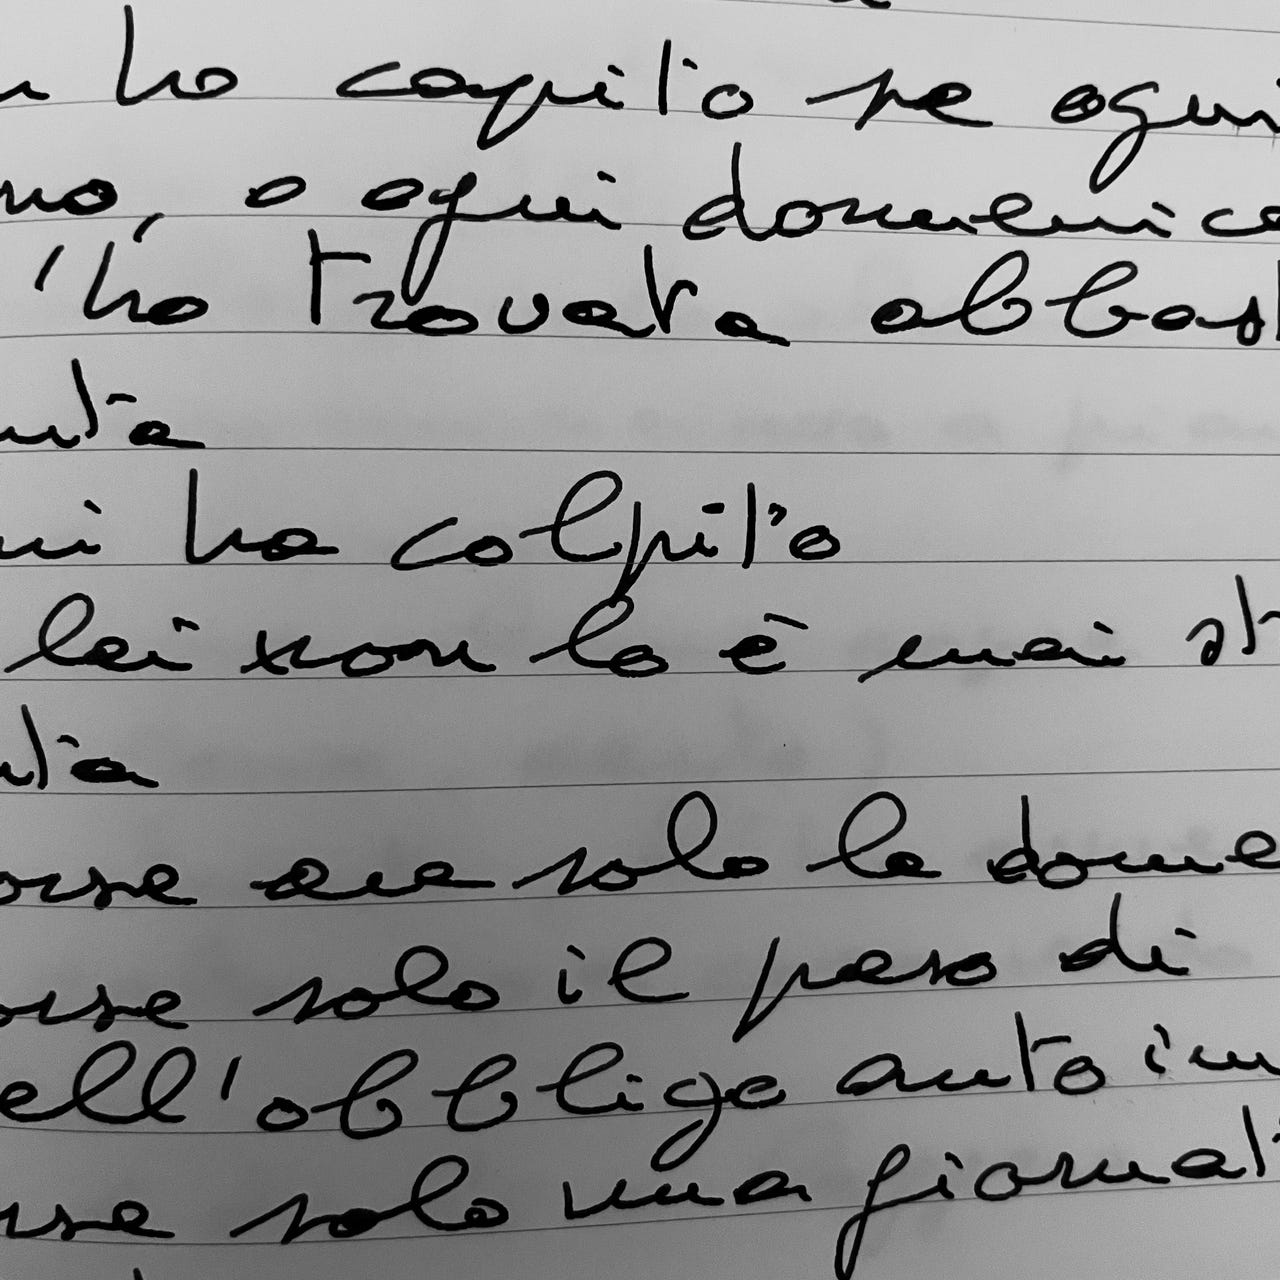 n ho capito se ogni
no, o ogni domenica
l'ho trovata abbast
uta
mi ha colpito
lei non lo è mai st
uta
orse era solo la dome
orse solo il peso di
ell'obbligo auto im
rse solo una giornat